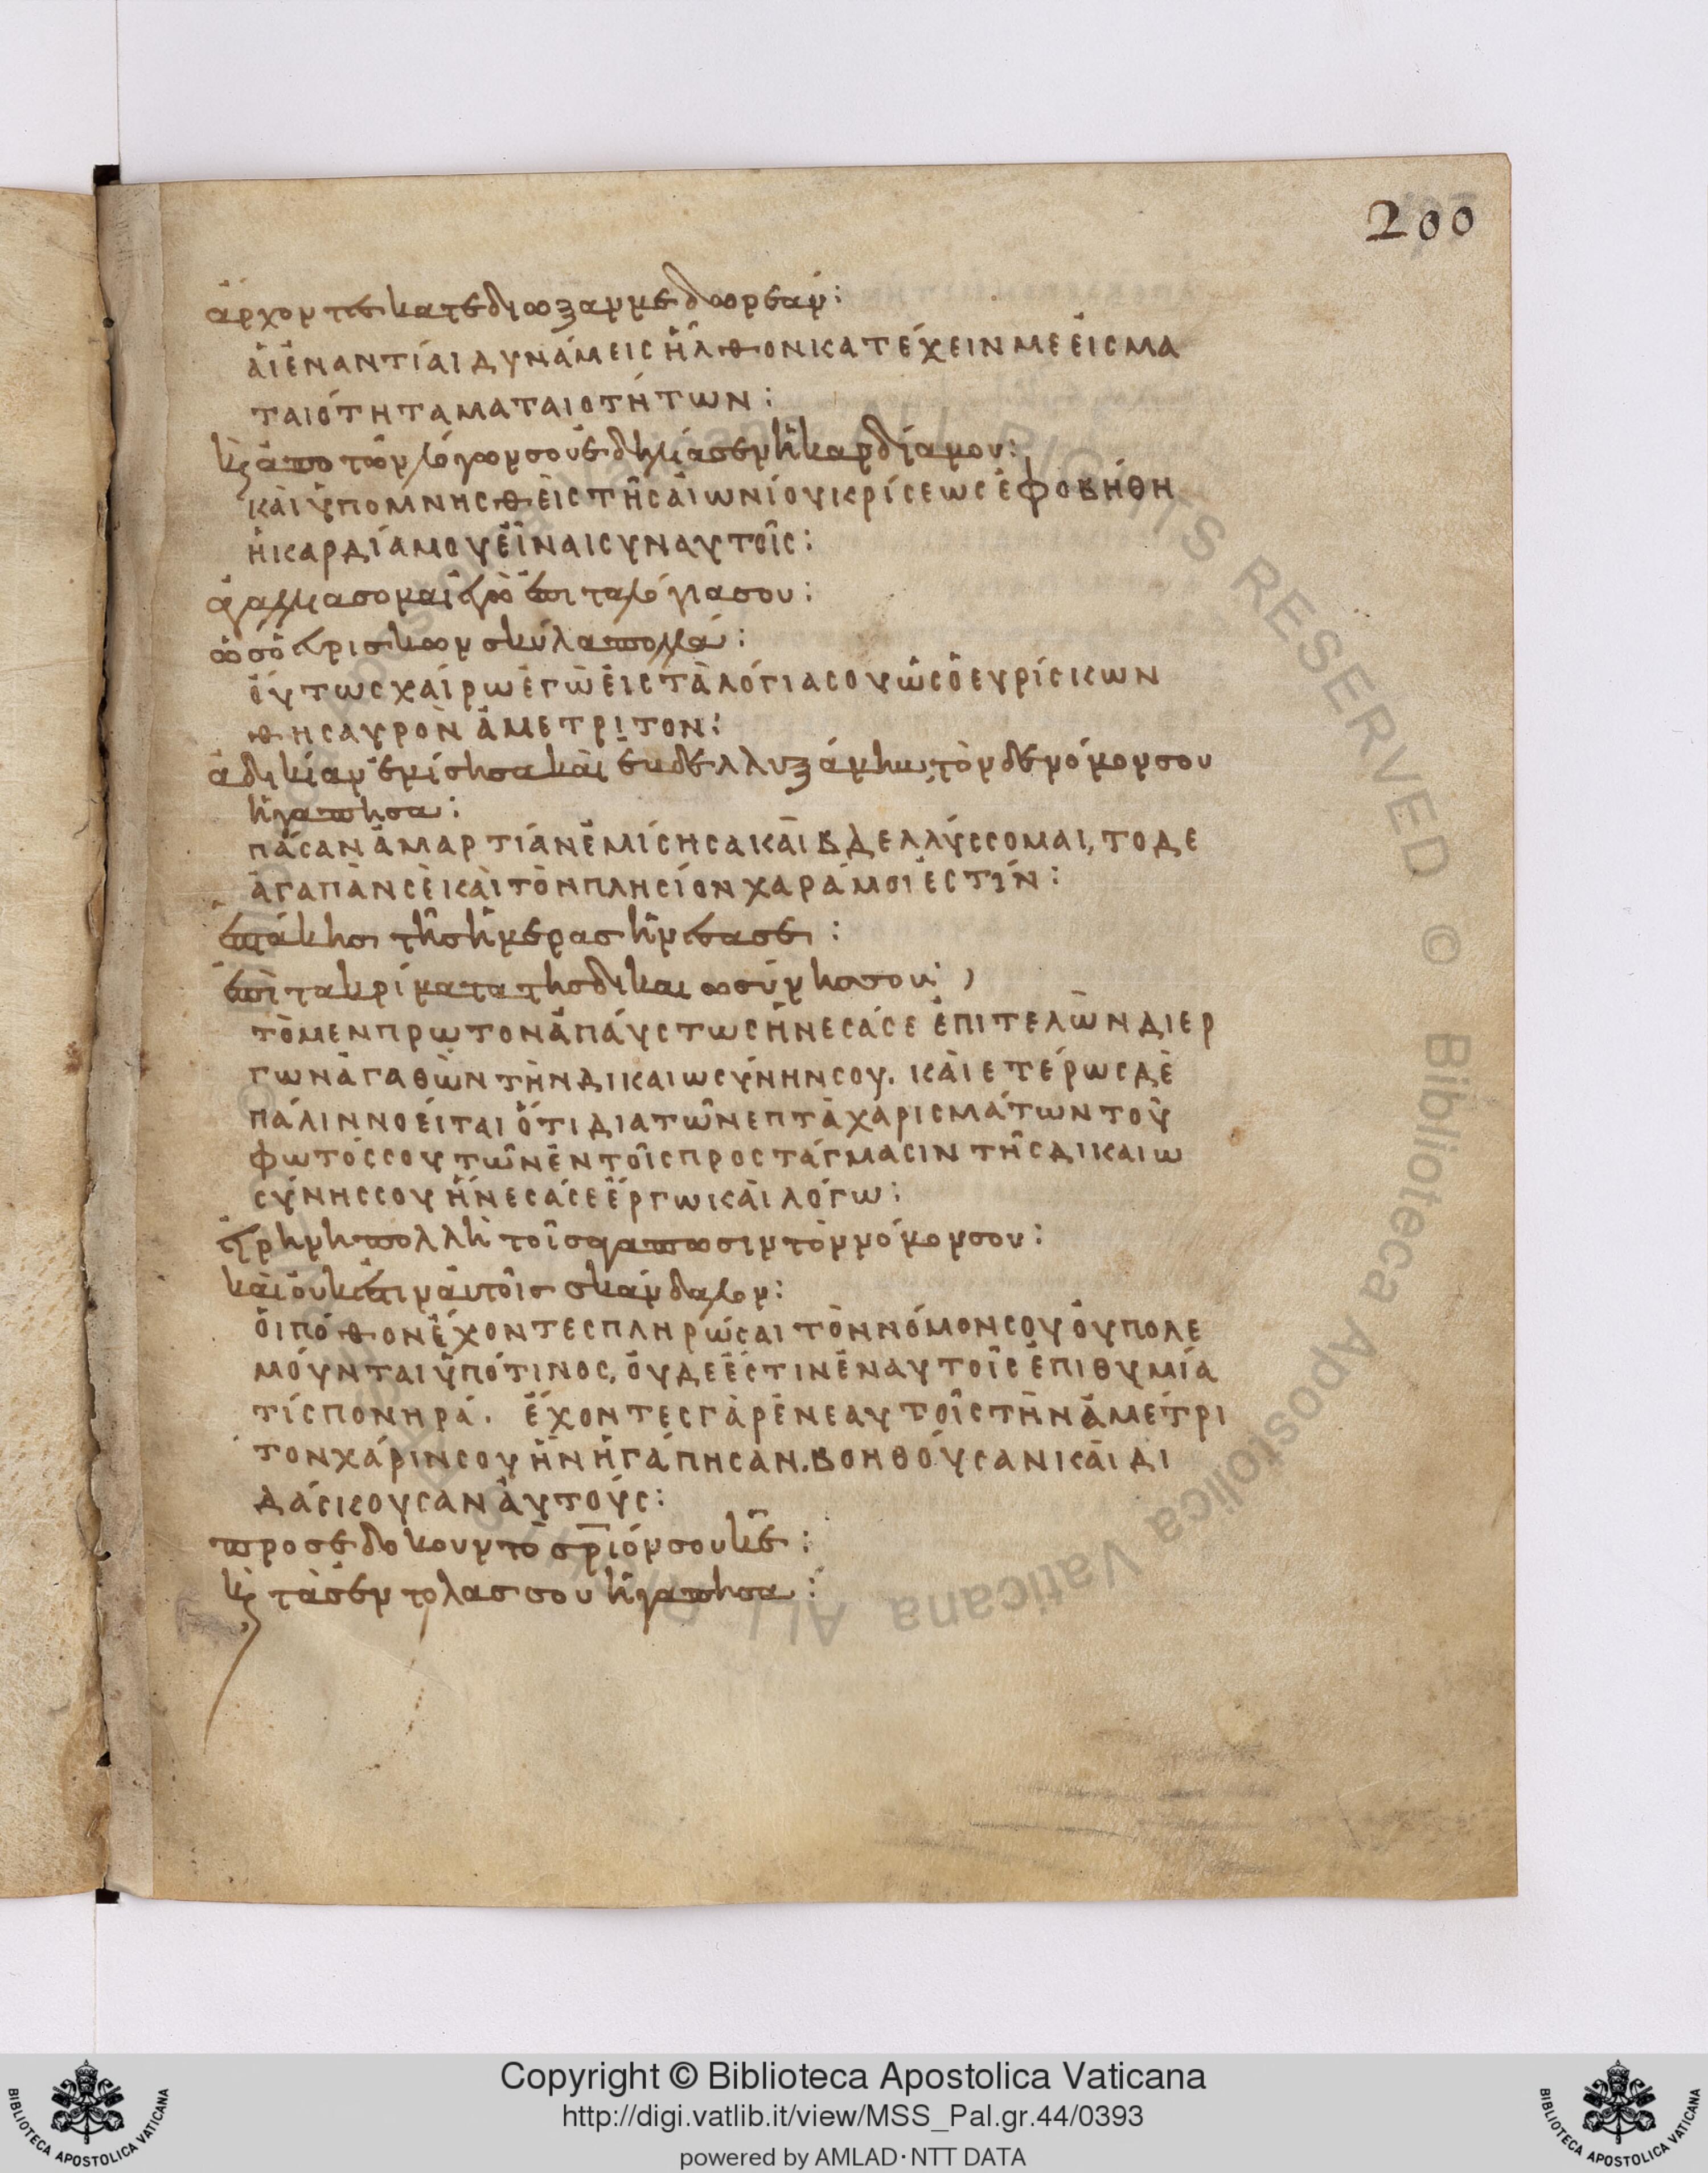 200
ἄρχοντες κατεδίωξαν με δωρεάν:
ἁι ἐναντίαι δυνάμεις ἦλθον κατέχειν με ἐις μα
ταιότητα ματαιοτήτων:
κ(αὶ) ἀπο τῶν λόγων σου ἐδηλίασεν ἡ καρδία μου:
καὶ ὑπομνησθεὶς τῆς αἰωνίου κρίσεως ἐφοβήθη
ἡ καρδία μου εἶναι συν αυτοῖς:
ἀγαλλιασομαι ἐγὼ ἐπι τα λόγια σου:
ὡς ὁ ευρισκων σκύλα πολλά:
ὅυτως χαίρω ἐγὼ ἐις τὰ λόγια σου ὡς ὁ ευρίσκων
θησαυρὸν ἀμετριτον:
ἀδικίαν ἐμίσησα καὶ ἐυδελλυξάμην, τὸν δε νόμον σου
ἠγαπησα:
πᾶσαν ἁμαρτίαν ἐμίσησα καὶ βδελλύσσομαι, το δε
ἀγαπᾶν σὲ καὶ τὸν πλησίον χαρά μοι ἐστίν:
ἑπτάκης τῆς ἡμέρας ἤνεσα σε:
ἐπὶ τα κρίματα της δικαιωσύνης σου:
τὸ μεν πρωτον ἀπάυστως ἤνεσά σε ἐπιτελῶν δι ερ
γων ἀγαθῶν τὴν δικαιωσύνην σου. κὰι ετέρως δὲ
πάλιν νοείται ὅτι δια τῶν επτὰ χαρισμάτων τοῦ
φωτός σου τῶν ἐν τοῖς προστάγμασιν τῆς δικαιω
σύνης σου ἤνεσά σε ἔργω κὰι λόγω:
ἐιρηνη πολλὴ τοῖς ἀγαπωσιν τὸν νόμον σου:
κὰι ὀυκ ἔστιν ἀυτοῖς σκάνδαλον:
ὁι πόθον ἔχοντες πληρώσαι τὸν νόμον σου ὀυ πολε
μόυνται ὑπό τινος, ὀυδε ἔστιν ἐν αυτοῖς ἐπιθυμία
τίς πονηρά. ἔχοντες γὰρ ἐν εαυτοῖς τὴν ἀμετρι
τον χάριν σου ἣν ἠγάπησαν. βοηθόυσαν κὰι δι
δάσκουσαν ἀυτούς:
προσεδοκουν το σ(ωτή)ριόν σου κ(ύρι)ε:
κ(αὶ) τὰς ἐντολας σου ἠγαπησα:
Copyright © Biblioteca Apostolica Vaticana
http://digi.vatlib.it/view/MSS_Pal.gr.44/0393
powered by AMLAD·NTT DATA
BIBLIOTECA APOSTOLICA VATICANA
BIBLIOTECA APOSTOLICA VATICANA